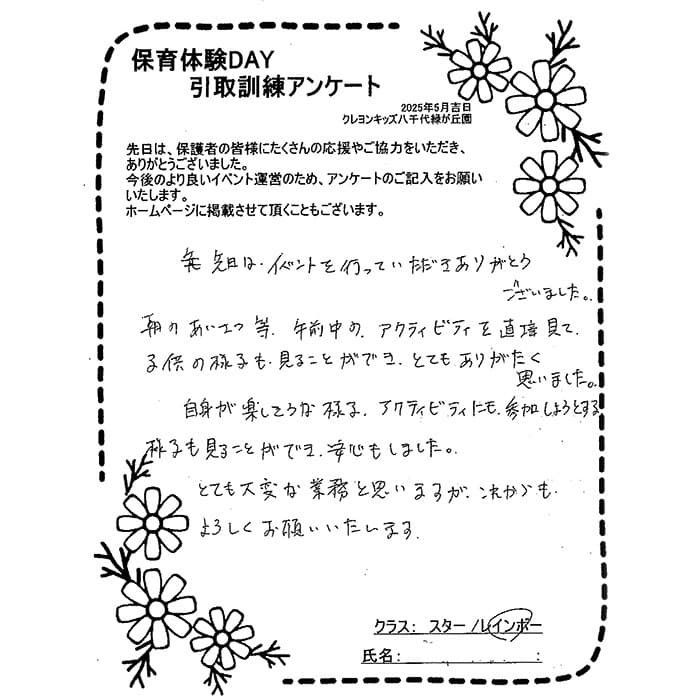 保育体験DAY
引取訓練アンケート
2025年5月吉日
クレヨンキッズ八千代緑が丘園
先日は、保護者の皆様にたくさんの応援やご協力をいただき、
ありがとうございました。
今後のより良いイベント運営のため、アンケートのご記入をお願い
いたします。
ホームページに掲載させて頂くこともございます。
先日は、イベントを行っていただきありがとう
ございました。
朝のあいさつ等、午前中の、アクティビティを直接見て、
子供の様子も、見ることができ、とてもありがたく
思いました。
自身が楽しそうな様子、アクティビティにも、参加しようとする
様子も見ることができ、安心もしました。
とても大変な業務と思いますが、これからも、
よろしくお願いいたします。
クラス: スター /レインボー
氏名: